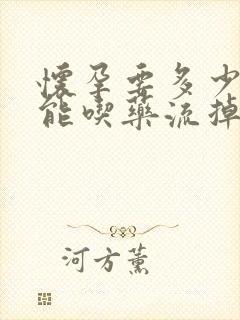 懷孕要多少
能喫藥流掉
河方薰